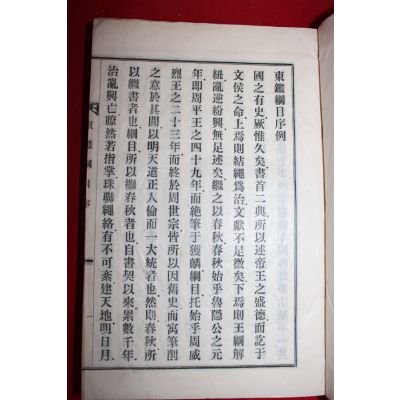 東鑑綱目序例
國之有史厥惟久矣書首二典所以述帝王之盛德而訖于
文侯之命上焉則結繩爲治文獻不足徵矣下焉則王綱解
紐亂逆紛興無足述矣繼之以春秋春秋始乎魯隱公之元
年即周平王之四十九年而絶筆于獲麟綱目托始乎周威
烈王之二十三年而終於周世宗皆所以因舊史而寓筆削
之意於其間以明天道正人倫而大一統者也然則春秋所
以繼書者也綱目所以繼春秋者也自書契以來累數千年
治亂興亡瞭然若指掌珠聯繩絡有不可紊建天地明日月
東鑑綱目序
一